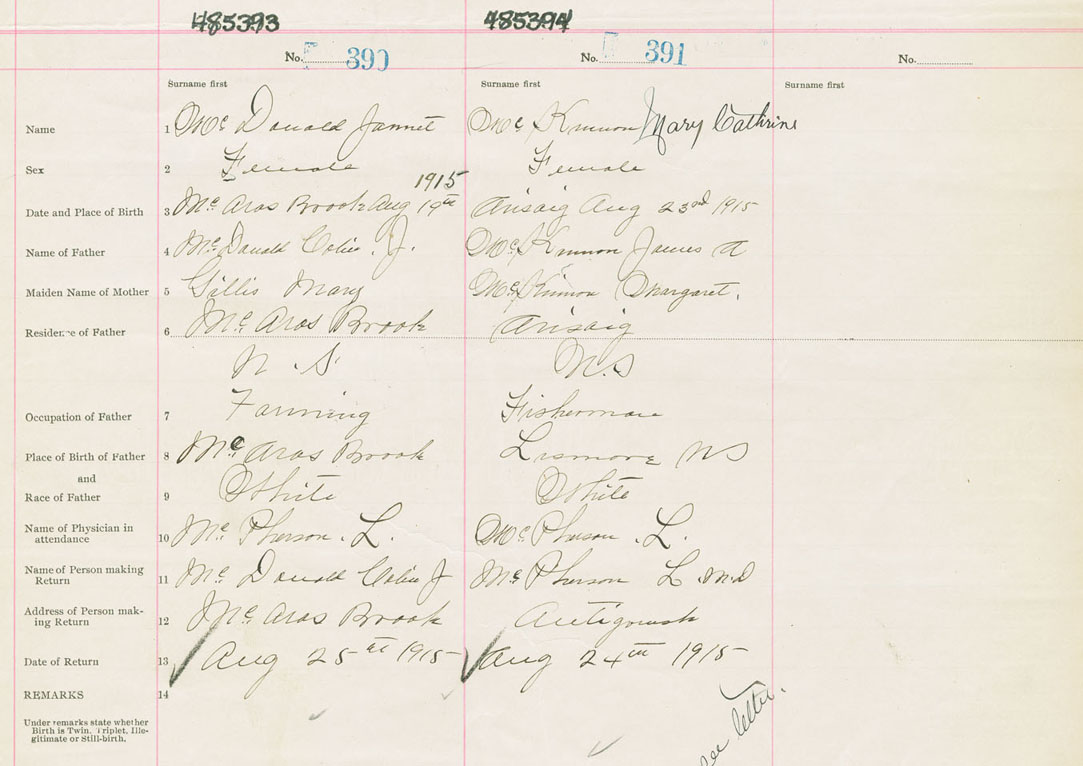 485393 485394
No. 390 No. 391 No.
Surname first Surname first Surname first
Name 1 Mc Donald Jannet Mc Kinnon Mary Cathrine
Sex 2 Female Female
1915
Date and Place of Birth 3 Mc Aras Brook Aug 19th Arisaig Aug 23rd 1915
Name of Father 4 Mc Donald Colin J. Mc Kinnon James A
Maiden Name of Mother 5 Gillis Mary Mc Kinnon Margaret.
Residence of Father 6 Mc Aras Brook Arisaig
N.S. N.S
Occupation of Father 7 Farming Fisherman
Place of Birth of Father 8 Mc Aras Brook Lismore NS
and
Race of Father 9 White White
Name of Physician in
attendance 10 Mc Pherson. L. Mc Pherson. L.
Name of Person making
Return 11 Mc Donald Colin J Mc Pherson L M.D
Address of Person mak-
ing Return 12 Mc Aras Brook Antigonish
Date of Return 13 Aug 25th 1915 Aug 24th 1915
REMARKS 14
Under remarks state whether
Birth is Twin, Triplet, Ille-
gitimate or Still-birth.
see letter.